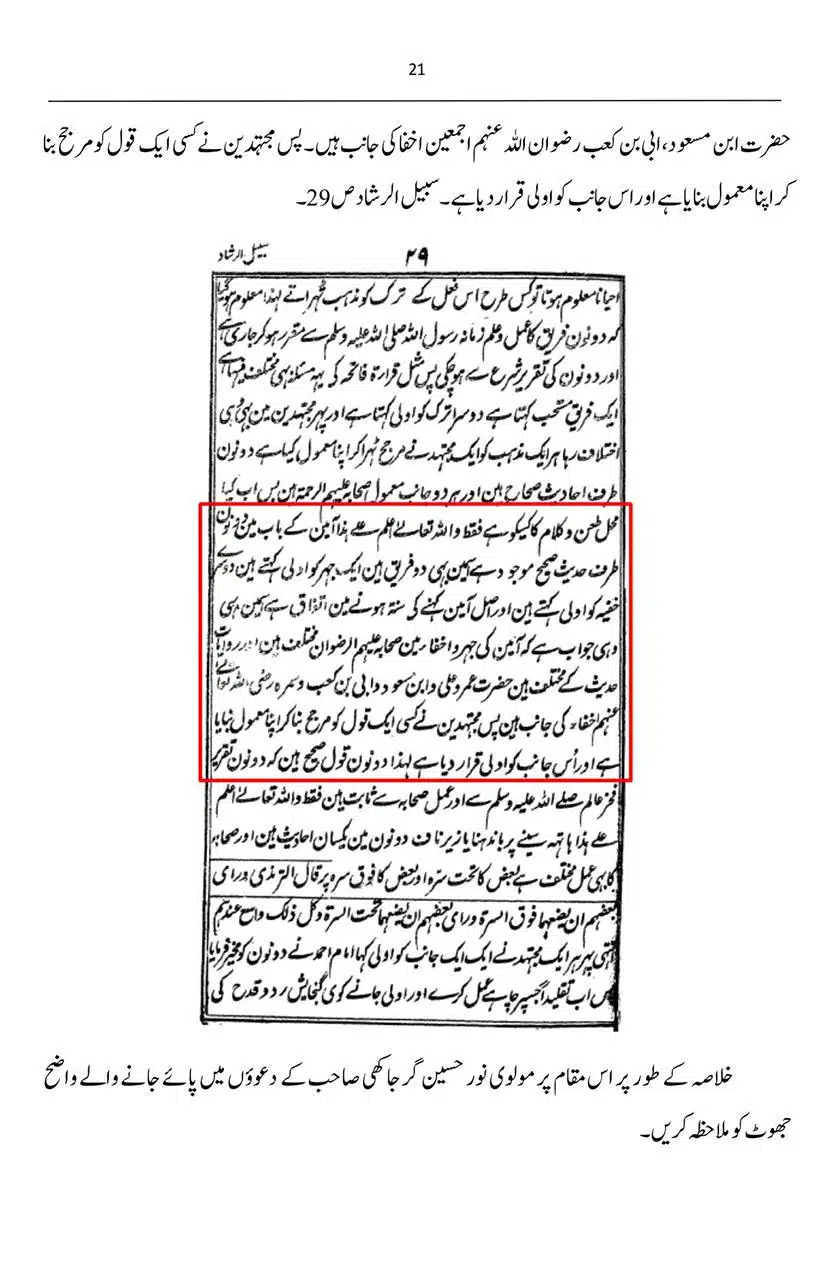 21
حضرت ابن مسعود، ابی بن کعب رضوان اللہ عنہم اجمعین اخفا کی جانب ہیں۔ پس مجتہدین نے کسی ایک قول کو مرجح بنا
کر اپنا معمول بنایا ہے اور اس جانب کو اولی قرار دیا ہے۔ سبیل الرشاد ص29۔
سبیل الرشاد
۲۹
احیانا معلوم ہوتا تو کس طرح اس فعل کے ترک کو مذہب ٹھہراتے لہذا معلوم ہوگیا
کہ دونون فریق کا عمل و علم زمانہ رسول اللہ صلی اللہ علیہ وسلم سے مقرر ہو کر جاری ہے
اور دونون کی تقریر شرع سے ہو چکی پس مثل قراءۃ فاتحہ کی یہہ مسئلہ بہی مختلف فیہا ہے
ایک فریق مستحب کہتا ہے دوسرا ترک کو اولی کہتا ہے اور پہر مجتہدین مین بہی وہی
اختلاف رہا ہر ایک مذہب کو ایک مجتہد نے مرجح ٹہرا کر اپنا معمول کیا ہے دونون
طرف احادیث صحاح ہین اور ہر دو جانب معمول صحابہ علیہم الرحمۃ ہین بس اب کیا
محل طعن و کلام کا کیکو ہے فقط واللہ تعالے اعلم علے ہذا آمین کے باب مین دونون
طرف حدیث صحیح موجود ہے اسمین بہی دو فریق ہین ایک جہر کو اولی کہتے ہین دوسرے
خفیہ کو اولی کہتے ہین اور اصل آمین کہنے کی سنۃ ہونے مین اتفاق ہے اسمین بہی
وہی جواب ہے کہ آمین کی جہر و اخفاء مین صحابہ علیہم الرضوان مختلف ہین اور روایات
حدیث کے مختلف ہین حضرت عمر و علی و ابن مسعود و ابی بن کعب و سمرہ رضی اللہ تعالے
عنہم اخفاء کی جانب ہین پس مجتہدین نے کسی ایک قول کو مرجح بنا کر اپنا معمول بنایا
ہے اور اُس جانب کو اولی قرار دیا ہے لہذا دونون قول صحیح ہین کہ دونون تقریر
فخر عالم صلے اللہ علیہ وسلم سے اور عمل صحابہ سے ثابت ہین فقط واللہ تعالے اعلم
علے ہذا ہاتہہ سینے پر باندہنا یا زیر ناف دونون مین یکسان احادیث ہین اور صحابہ
کا بہی عمل مختلف ہے بعض کا تحت سرّہ اور بعض کا فوق سرہ پر قال الترمذی ورای
بعضہم ان یضعہما فوق السرۃ ورای بعضہم ان یضعہما تحت السرۃ وکل ذلک واسع عندہم
انتہی پہر ہر ایک مجتہد نے ایک ایک جانب کو اولی کہا امام احمد نے دونون کو مخیر فرمایا
پس اب تقلیدا جسپر چاہے عمل کرے اور اولی جانے کوی گنجایش رد و قدح کی
خلاصہ کے طور پر اس مقام پر مولوی نور حسین گرجاکھی صاحب کے دعوؤں میں پائے جانے والے واضح
جھوٹ کو ملاحظہ کریں۔